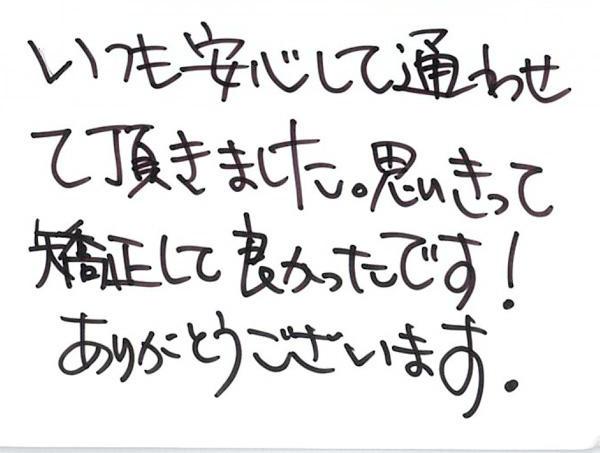 いつも安心して通わせ
て頂きました。思いきって
矯正して良かったです!
ありがとうございます.